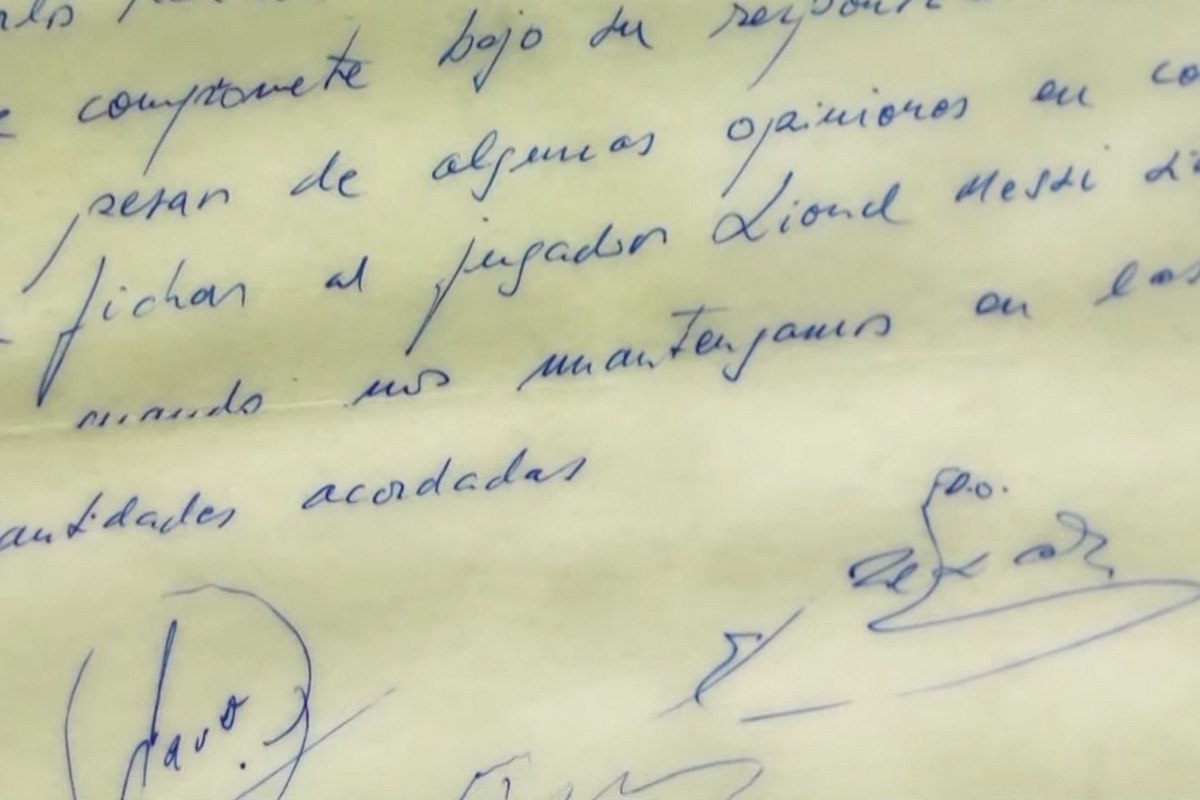 compromete bajo su respons
pesar de algunas opiniones en co
fichar al jugador Lionel Messi si
cuando nos mantengamos en las
antidades acordadas
FDO.